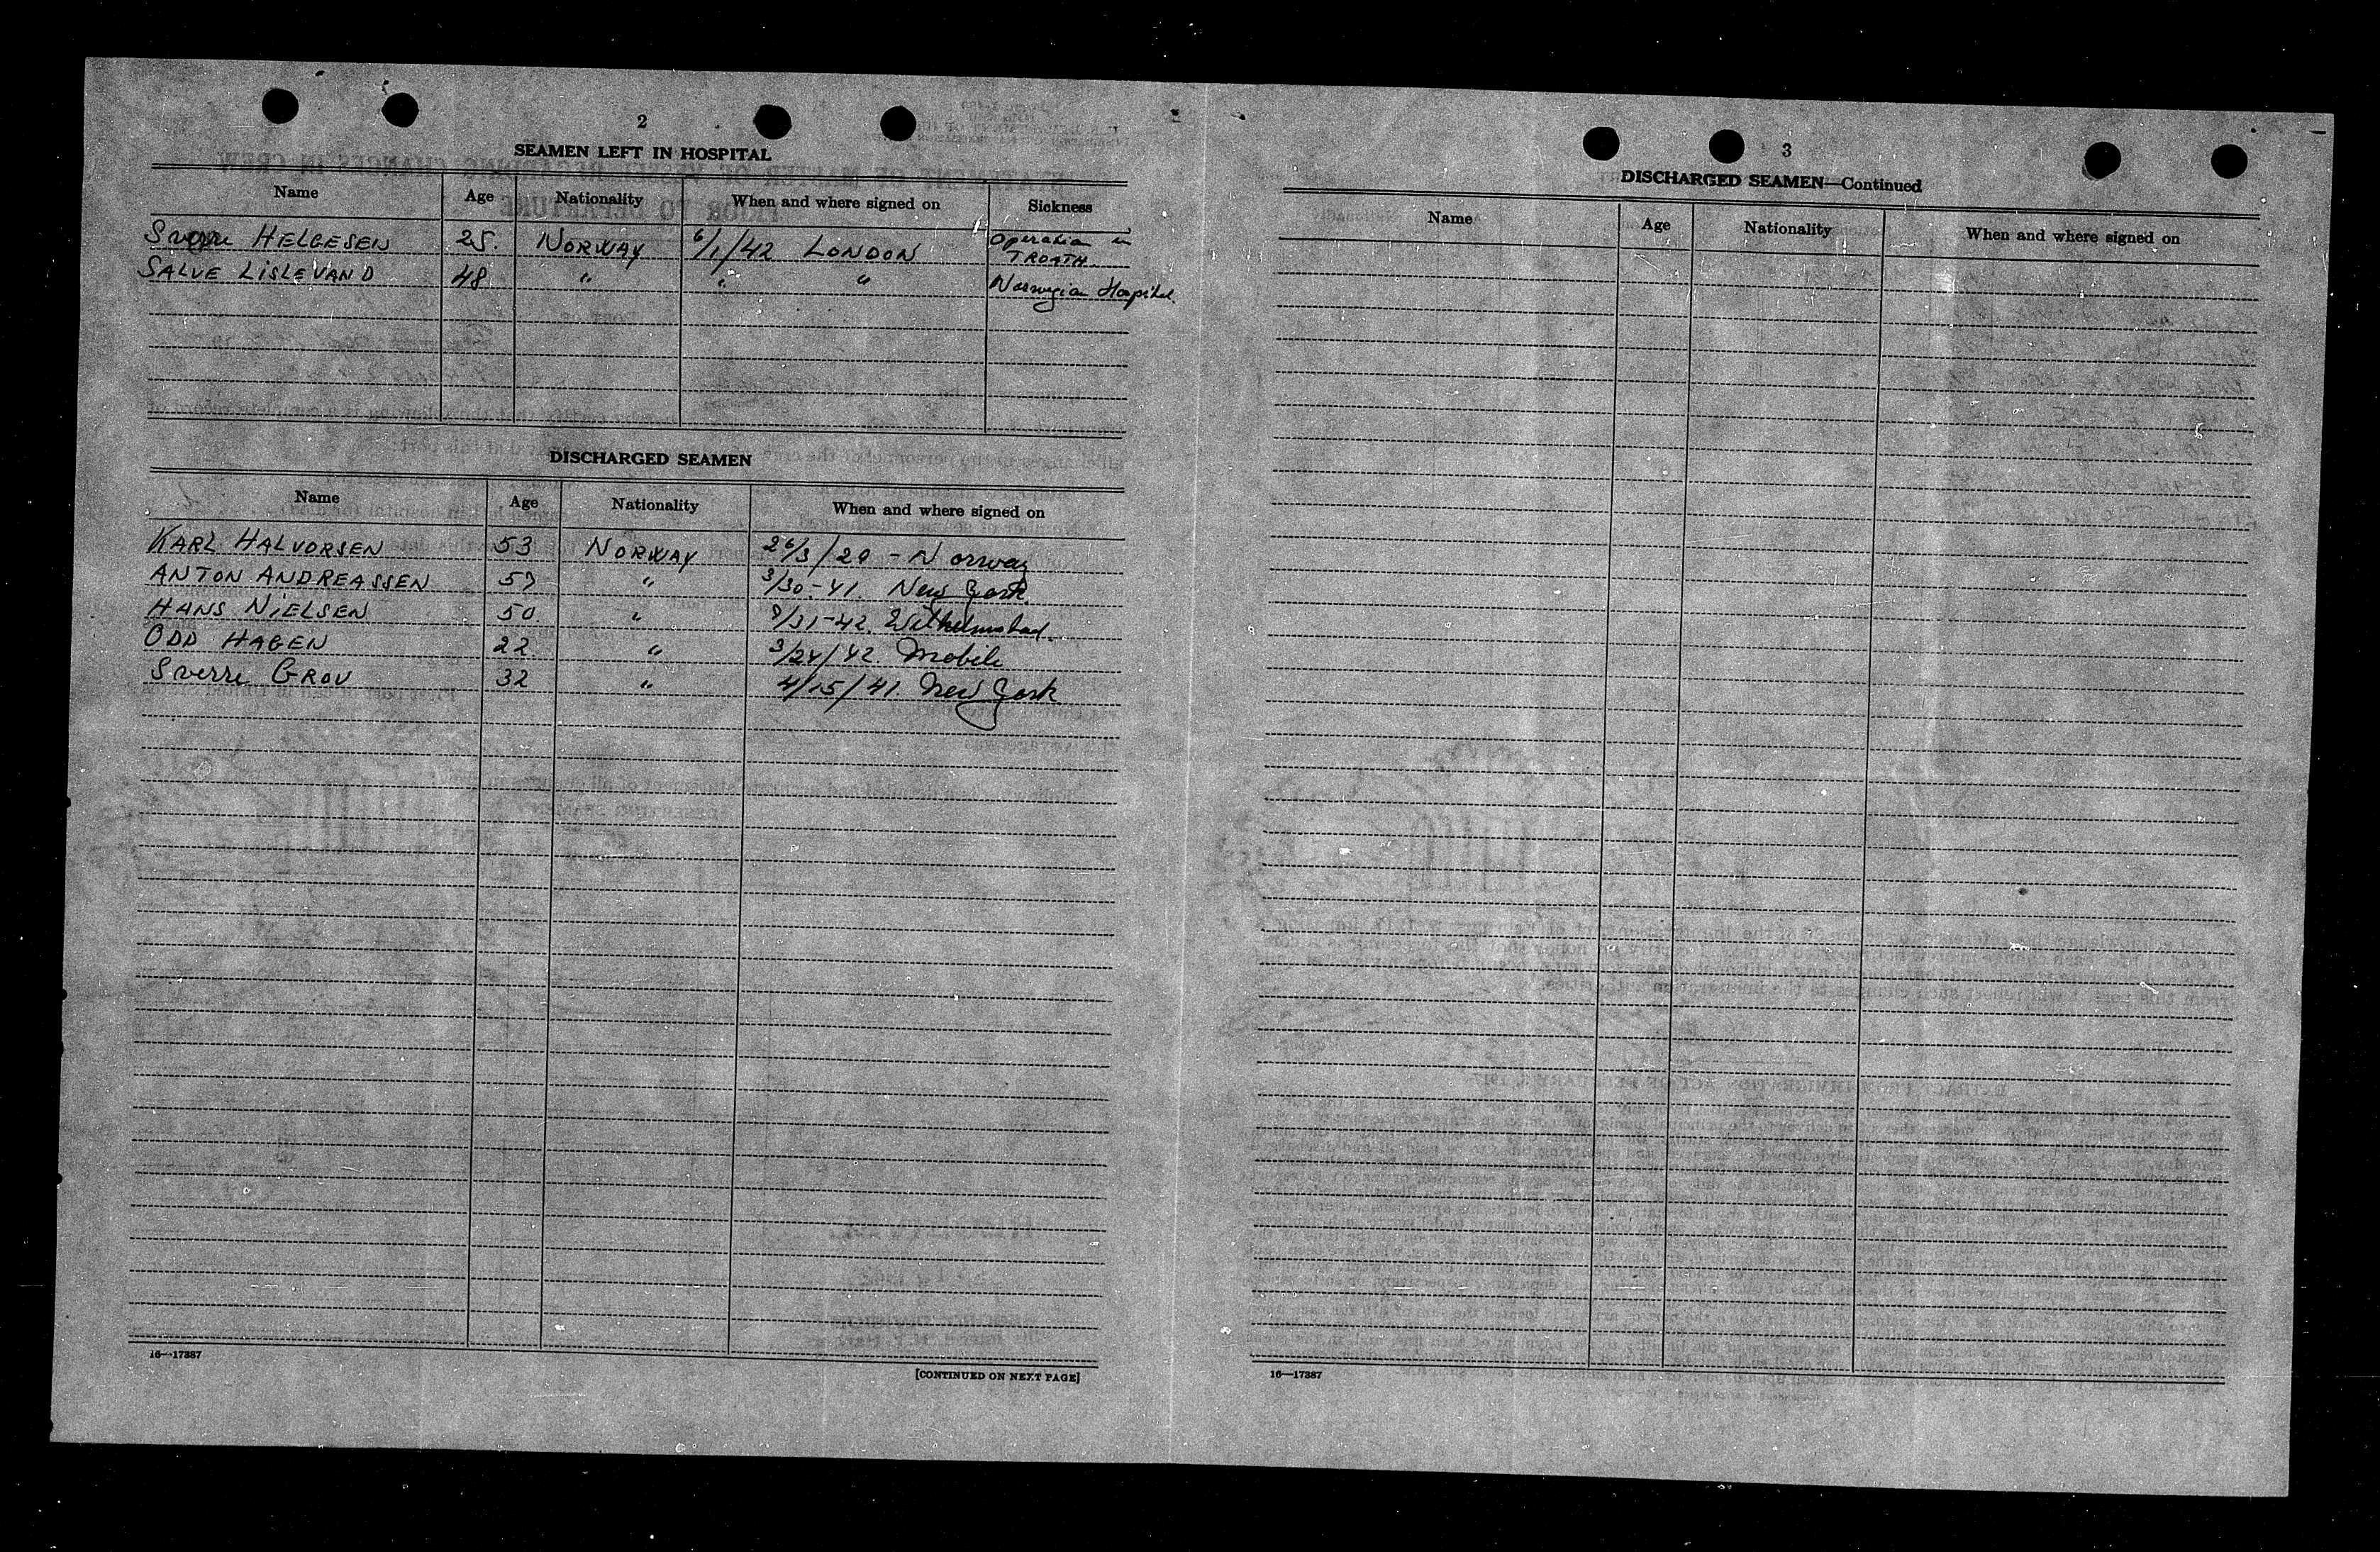 2
SEAMEN LEFT IN HOSPITAL
Name Age Nationality When and where signed on Sickness
Sverre HELGESEN 25. NORWAY 6/1/42 LONDON Operation in TROATH
SALVE LISLEVAND 48 " " " Norwegian Hospital.
DISCHARGED SEAMEN
Name Age Nationality When and where signed on
KARL HALVORSEN 53 NORWAY 26/3/20 - Norway
ANTON ANDREASSEN 57 " 3/30-41. New York.
HANS NIELSEN 50. " /31-42. Wilhelmstad.
ODD HAGEN 22. " 3/24/42. Mobile
Sverre GROV 32 " 4/15/41. New York
16—17387
[CONTINUED ON NEXT PAGE]
3
DISCHARGED SEAMEN—Continued
Name Age Nationality When and where signed on
16—17387